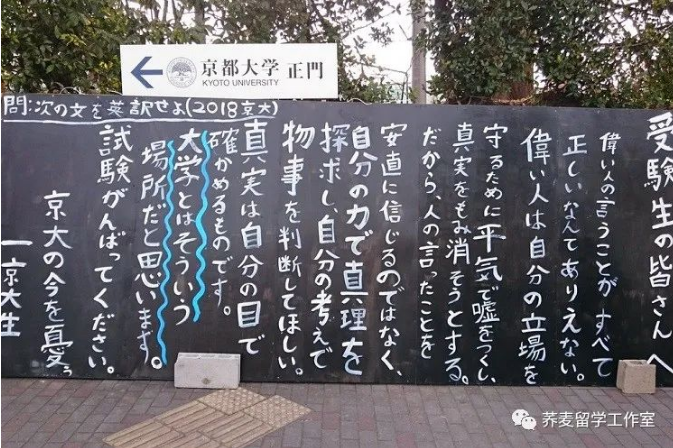 京都大学 正門
KYOTO UNIVERSITY
問:次の文を英訳せよ(2018京大)
受験生の皆さんへ
偉い人の言うことがすべて
正しいなんてありえない。
偉い人は自分の立場を
守るために平気で嘘をつくし、
真実をもみ消そうとする。
だから、人の言ったことを
安直に信じるのではなく、
自分の力で真理を
探求し、自分の考えで
物事を判断してほしい。
真実は自分の目で
確かめるものです。
大学とはそういう
場所だと思います。
試験がんばってください。
京大の今を憂う
一京大生
荞麦留学工作室